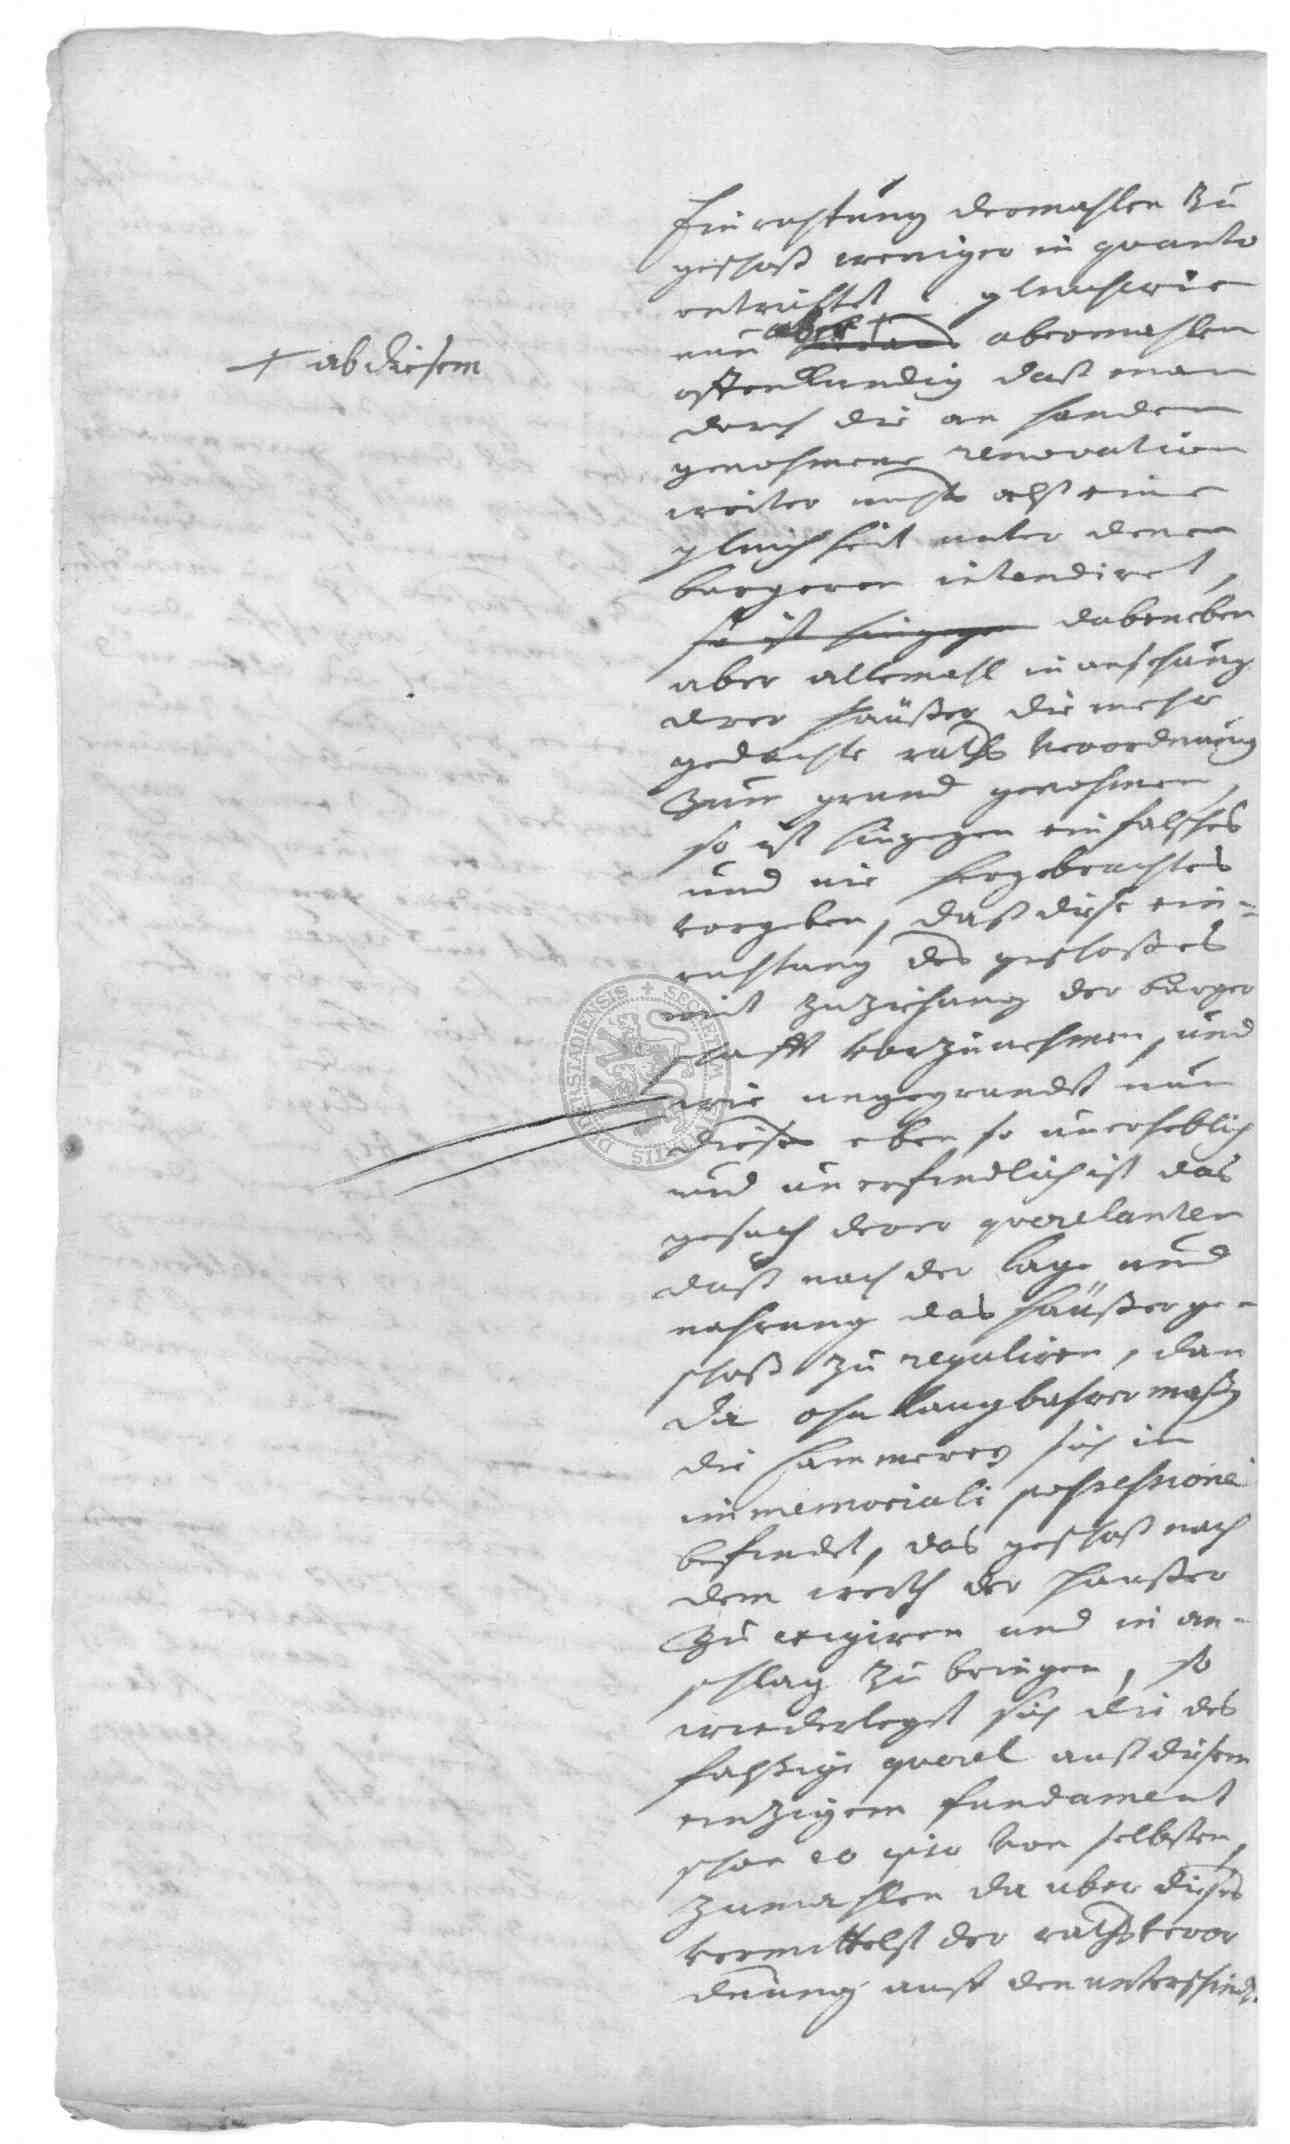 Einrichtung dermahlen zu
geschoß weniger in quanto
entrichtet, gleichwie
nun aber + abermahlen
+ ab diesem
offenkundig daß man
durch die an handen
genohmene renovation
weiter nichts alß eine
gleichheit unter denen
burgeren intendiret,
so ist hingegen dabeneben
aber allemahl in ansehung
derer häußer die mehr
gedachte raths verordnung
zum grund genohmen,
so ist hingegen ein falsches
und nie hergebrachtes
vorgeben, daß diese ein=
richtung des geschoßes
mit zuziehung der burger
schafft vorzunehmen, und
wie ungegrundet nun
dieses eben so unerheblich
und unerfindlich ist das
gesuch derer querelanten
daß nach der lage und
nahrung das häußer ge=
schoß zu reguliren, dan
da ohnlaugbahrermaßen
die Cammerey sich in
immemoriali possessione
befindet, das geschoß nach
dem werth der haußer
zu exigiren und in an=
schlag zu bringen, so
wiederleget sich die des
falßige querel auß diesem
einzigem fundament
schon eo ipso von selbsten,
zumahlen da uber dieses
vermittelst der raths veror
dnung auff den unterschied
SECRETUM DUDERSTADIENSIS